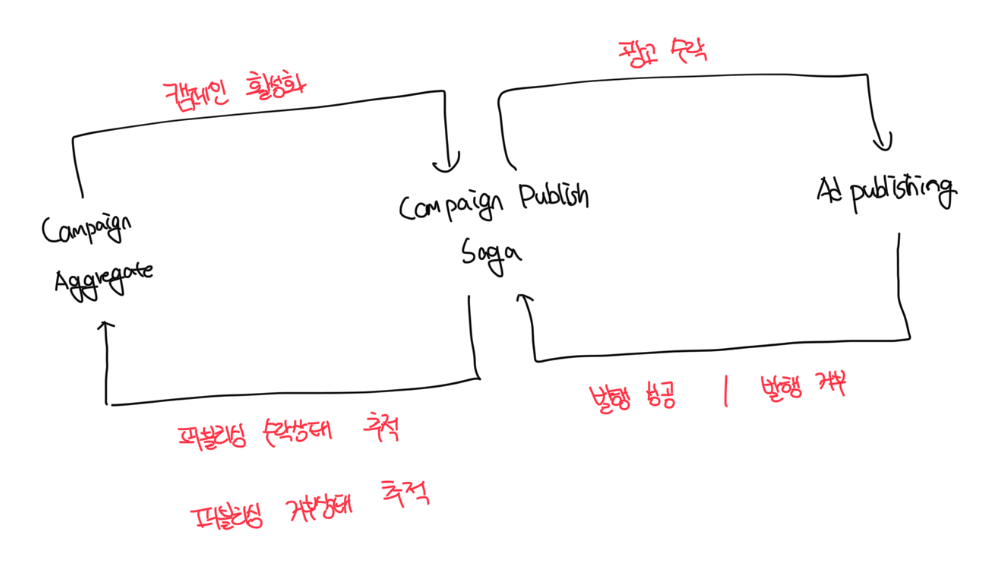 광고 수락
캠페인 활성화
Campaign
Aggregate
Campaign Publish
Saga
Ad publishing
발행 성공 | 발행 거부
퍼블리싱 수락상태 추적
퍼블리싱 거부상태 추적